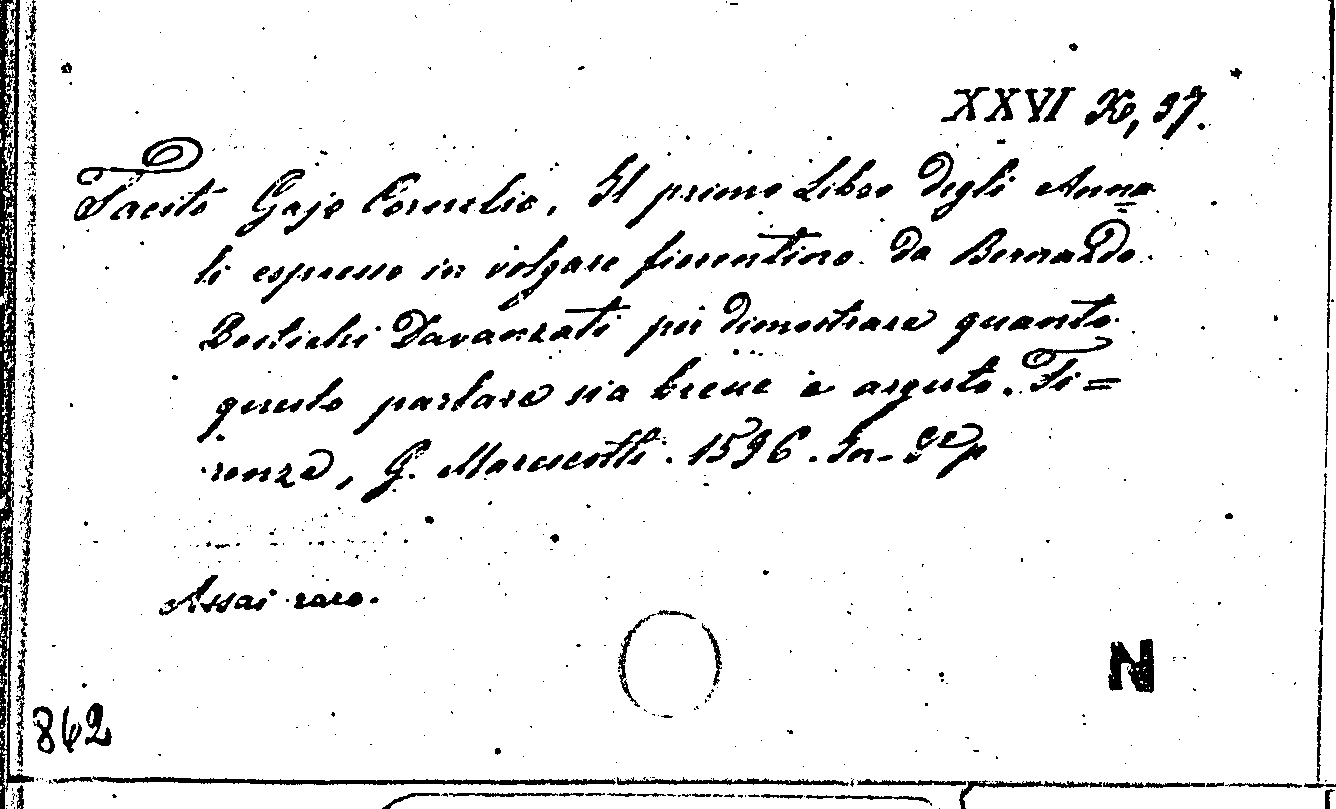 XXVI K, 37.
Tacito Gajo Cornelio, Il primo Libro degli Anna
li espresso in volgare fiorentino da Bernardo
Bostichi Davanzati per dimostrare quanto
questo parlare sia breve e arguto. Fi=
renze, G. Marescotti. 1596. In-
Assai raro.
N
862